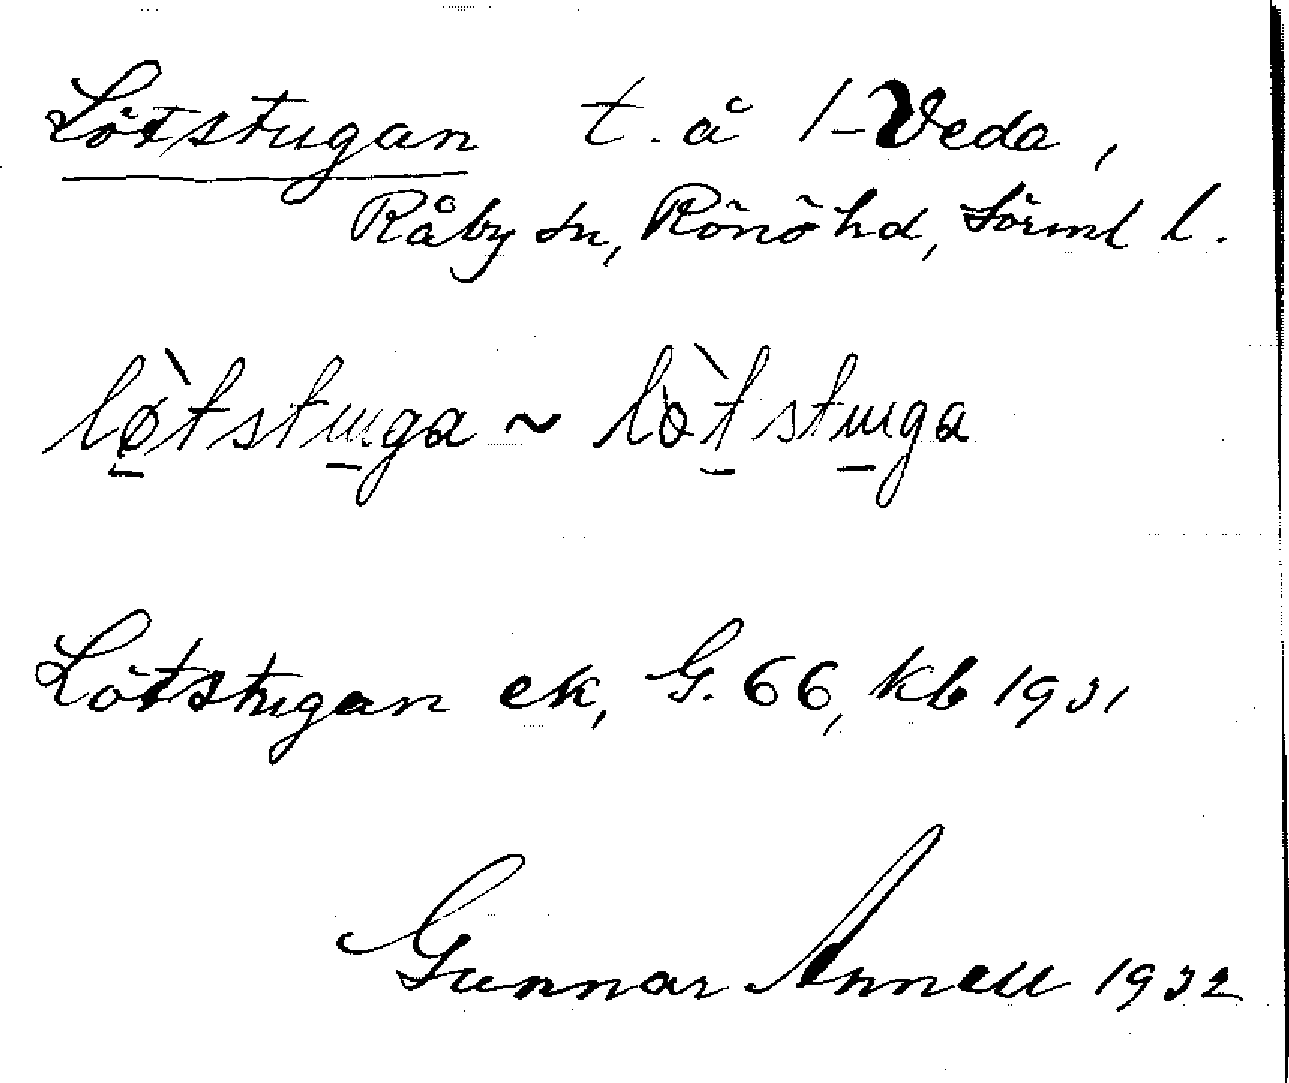 Lötstugan t. å 1 Veda,
Råby sn, Rönö hd, Sörml l.
lø̀tstuga ~ lòtstuga
Lötstugan ek, G. 66, kb 1931
Gunnar Annell 1932